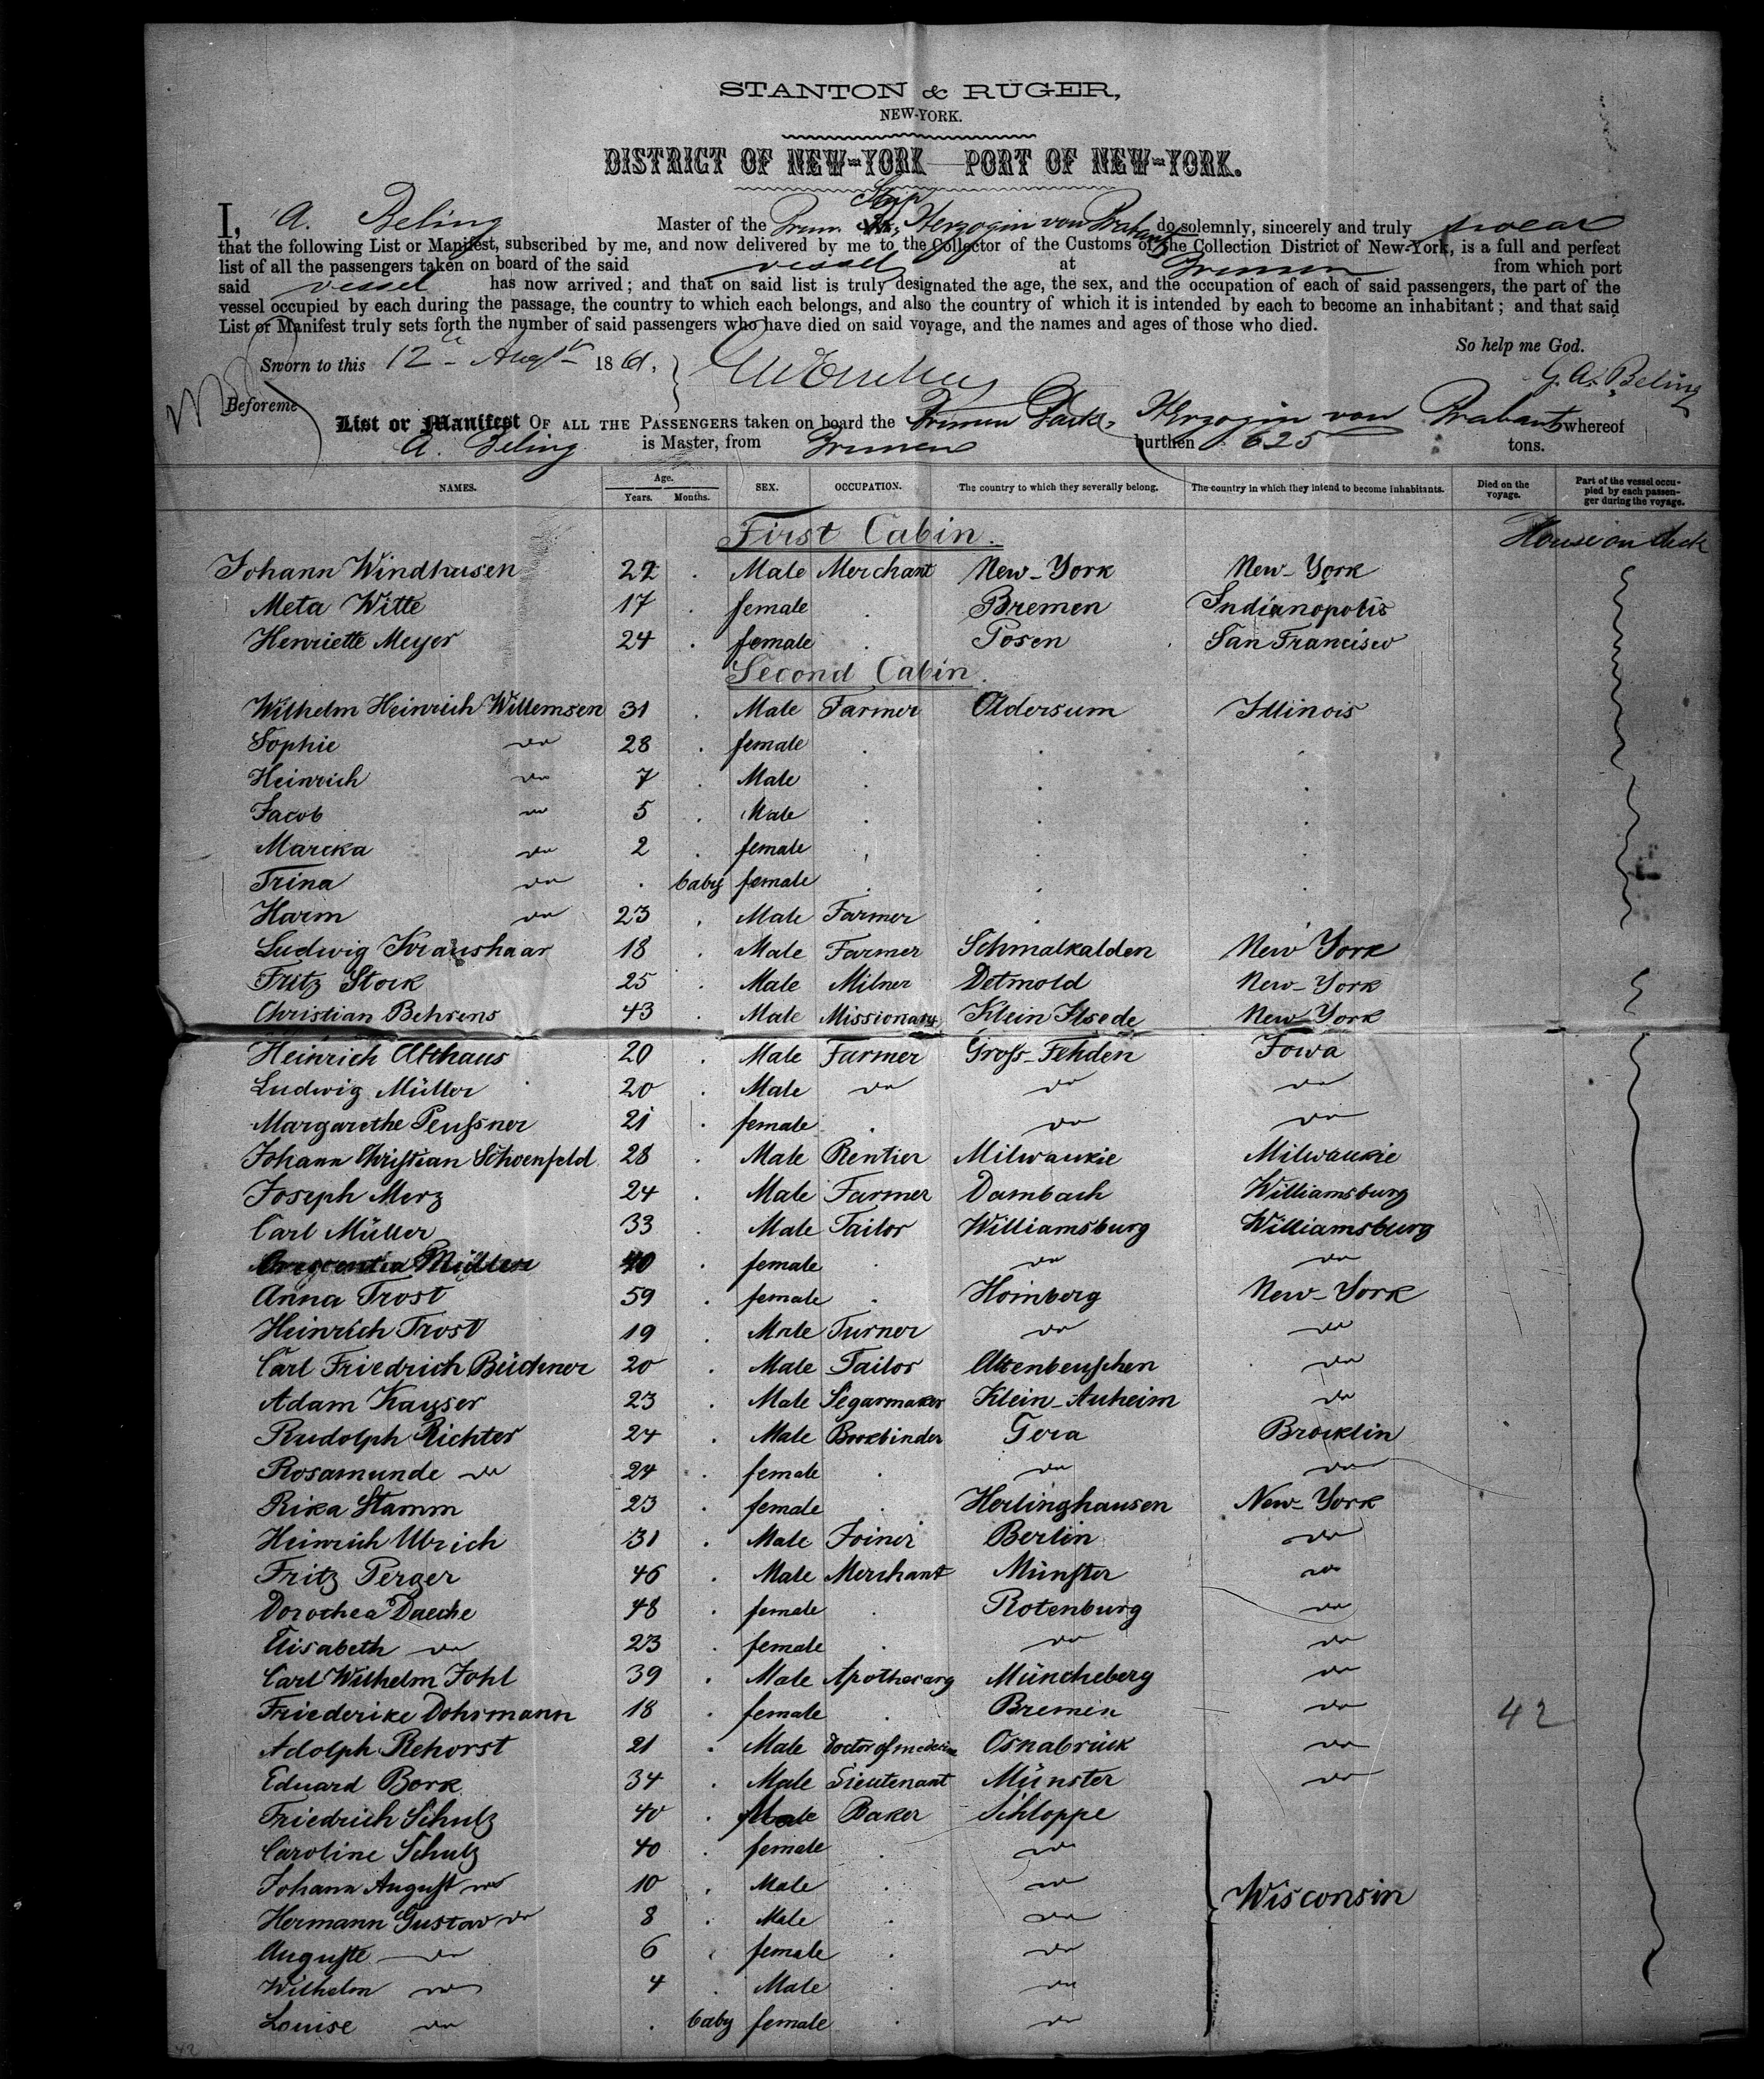 STANTON & RUGER,
NEW-YORK.
DISTRICT OF NEW-YORK—PORT OF NEW-YORK.
Ship
I, A. Beling Master of the Brem. Herzogin von Brabant do solemnly, sincerely and truly swear
that the following List or Manifest, subscribed by me, and now delivered by me to the Collector of the Customs of the Collection District of New-York, is a full and perfect
list of all the passengers taken on board of the said vessel at Bremen from which port
said vessel has now arrived; and that on said list is truly designated the age, the sex, and the occupation of each of said passengers, the part of the
vessel occupied by each during the passage, the country to which each belongs, and also the country of which it is intended by each to become an inhabitant; and that said
List or Manifest truly sets forth the number of said passengers who have died on said voyage, and the names and ages of those who died.
So help me God.
Sworn to this 12 Augt 1861.
G. A. Beling
Before me
List or Manifest OF ALL THE PASSENGERS taken on board the Bremen Herzogin von Brabant whereof
A. Beling is Master, from Bremen burthen 625 tons.
NAMES. Age. Years. Months. SEX. OCCUPATION. The country to which they severally belong. The country in which they intend to become inhabitants. Died on the voyage. Part of the vessel occupied by each passenger during the voyage.
First Cabin. House on deck
Johann Windhusen 22 . Male Merchant New-York New-York
Meta Witte 17 . female . Bremen Indianopolis
Henriette Meyer 24 . female . Posen San Francisco
Second Cabin.
Wilhelm Heinrich Willemsen 31 . Male Farmer Oldersum Illinois
Sophie do 28 . female . . .
Heinrich do 7 Male . . .
Jacob do 5 . Male . . .
Mareka do 2 . female . . .
Trina do . baby female . . .
Harm do 23 . Male Farmer . .
Ludwig Kraushaar 18 . Male Farmer Schmalkalden New York
Fritz Stork 25 . Male Milner Detmold New-York
Christian Behrens 43 . Male Missionary Klein Ilsede New-York
Heinrich Althaus 20 . Male Farmer Gross-Fehden Iowa
Ludwig Müller 20 . Male do do do
Margarethe Peussner 21 . female . do do
Johann Christian Schoenfeld 28 . Male Rentier Milwaukie Milwaukie
Joseph Merz 24 . Male Farmer Dambach Williamsburg
Carl Müller 33 Male Tailor Williamsburg Williamsburg
Crescentia Müller 40 female . do do
Anna Trost 59 . female . Homberg New-York
Heinrich Trost 19 . Male Turner do do
Carl Friedrich Büchner 20 . Male Tailor Altenbeuschen do
Adam Kayser 23 . Male Segarmaker Klein-Auheim do
Rudolph Richter 24 . Male Bookbinder Gera Brocklin
Rosamunde do 24 . female . do do
Rika Stamm 23 . female . Herlinghausen New-York
Heinrich Ulrich 31 . Male Joiner Berlin do
Fritz Perger 46 . Male Merchant Münster do
Dorothea Daeche 48 . female . Rotenburg do
Elisabeth do 23 . female . do do
Carl Wilhelm Johl 39 . Male Apothecary Müncheberg do
Friederike Dohrmann 18 . female . Bremen do 42
Adolph Rehorst 21 . Male Doctor of medicine Osnabrück do
Eduard Bork 34 . Male Lieutenant Münster do
Friedrich Schulz 40 . Male Baker Schloppe
Caroline Schulz 40 . female . do
Johann August do 10 . Male . do Wisconsin
Hermann Gustav do 8 . Male . do
Auguste do 6 . female . do
Wilhelm do 4 . Male . do
Louise do . baby female . do
42